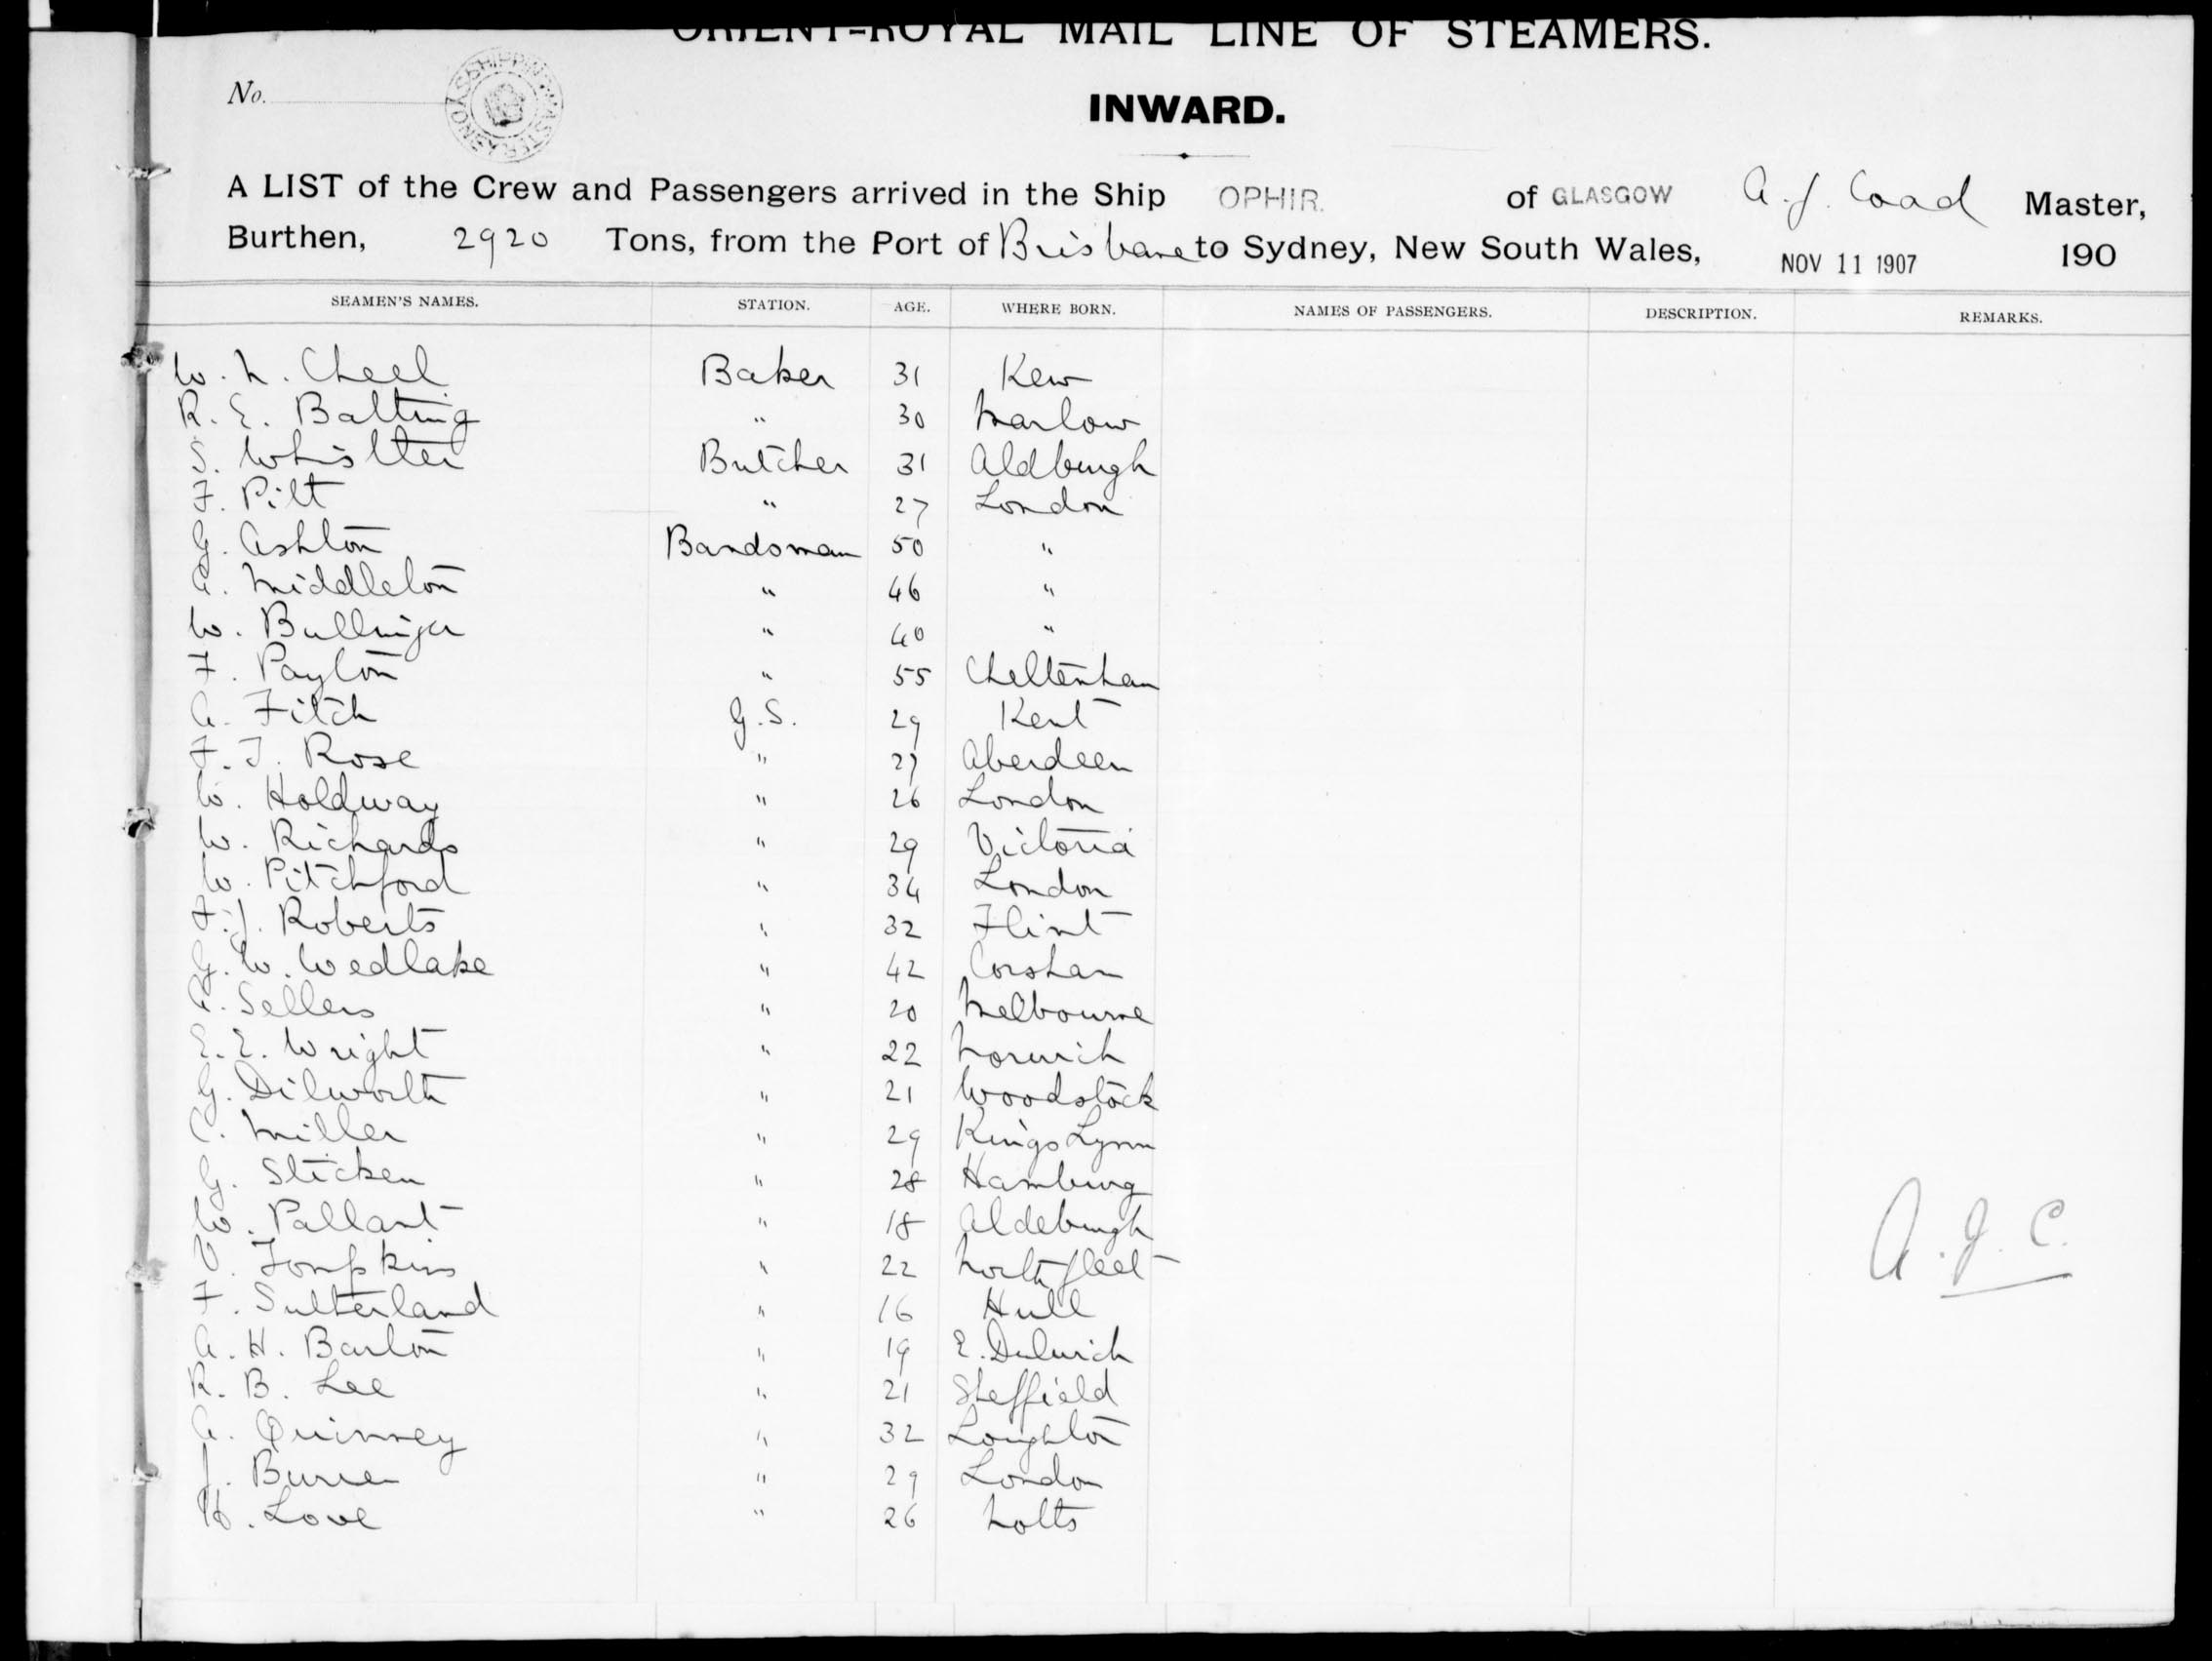 ORIENT-ROYAL MAIL LINE OF STEAMERS.
No.
INWARD.
A LIST of the Crew and Passengers arrived in the Ship OPHIR. of GLASGOW A. J. Coad Master,
Burthen, 2920 Tons, from the Port of Brisbane to Sydney, New South Wales, NOV 11 1907 190
SEAMEN'S NAMES. STATION. AGE. WHERE BORN. NAMES OF PASSENGERS. DESCRIPTION. REMARKS.
W. N. Cheel Baker 31 Kew
R. E. Balting " 30 Marlow
S. Whistler Butcher 31 Aldburgh
F. Pilt " 27 London
G. Ashton Bandsman 50 "
A. Middleton " 46 "
W. Bullinger " 40 "
F. Payton " 55 Cheltenham
A. Fitch G.S. 29 Kent
F. J. Rose " 27 Aberdeen
W. Holdway " 26 London
W. Richards " 29 Victoria
W. Pitchford " 34 London
F. J. Roberts " 32 Flint
G. W. Wedlake " 42 Corsham
A. Sellers " 20 Melbourne
E. E. Wright " 22 Norwich
G. Dilworth " 21 Woodstock
C. Miller " 29 Kings Lynn
G. Sticken " 28 Hamburg
W. Pallant " 18 Aldeburgh
V. Tompkins " 22 Northfleet
F. Sutherland " 16 Hull
A. H. Barton " 19 E. Dulwich
R. B. Lee " 21 Sheffield
A. Quinney " 32 Loughton
J. " 29 London
H. Love " 26 Notts
A. J. C.